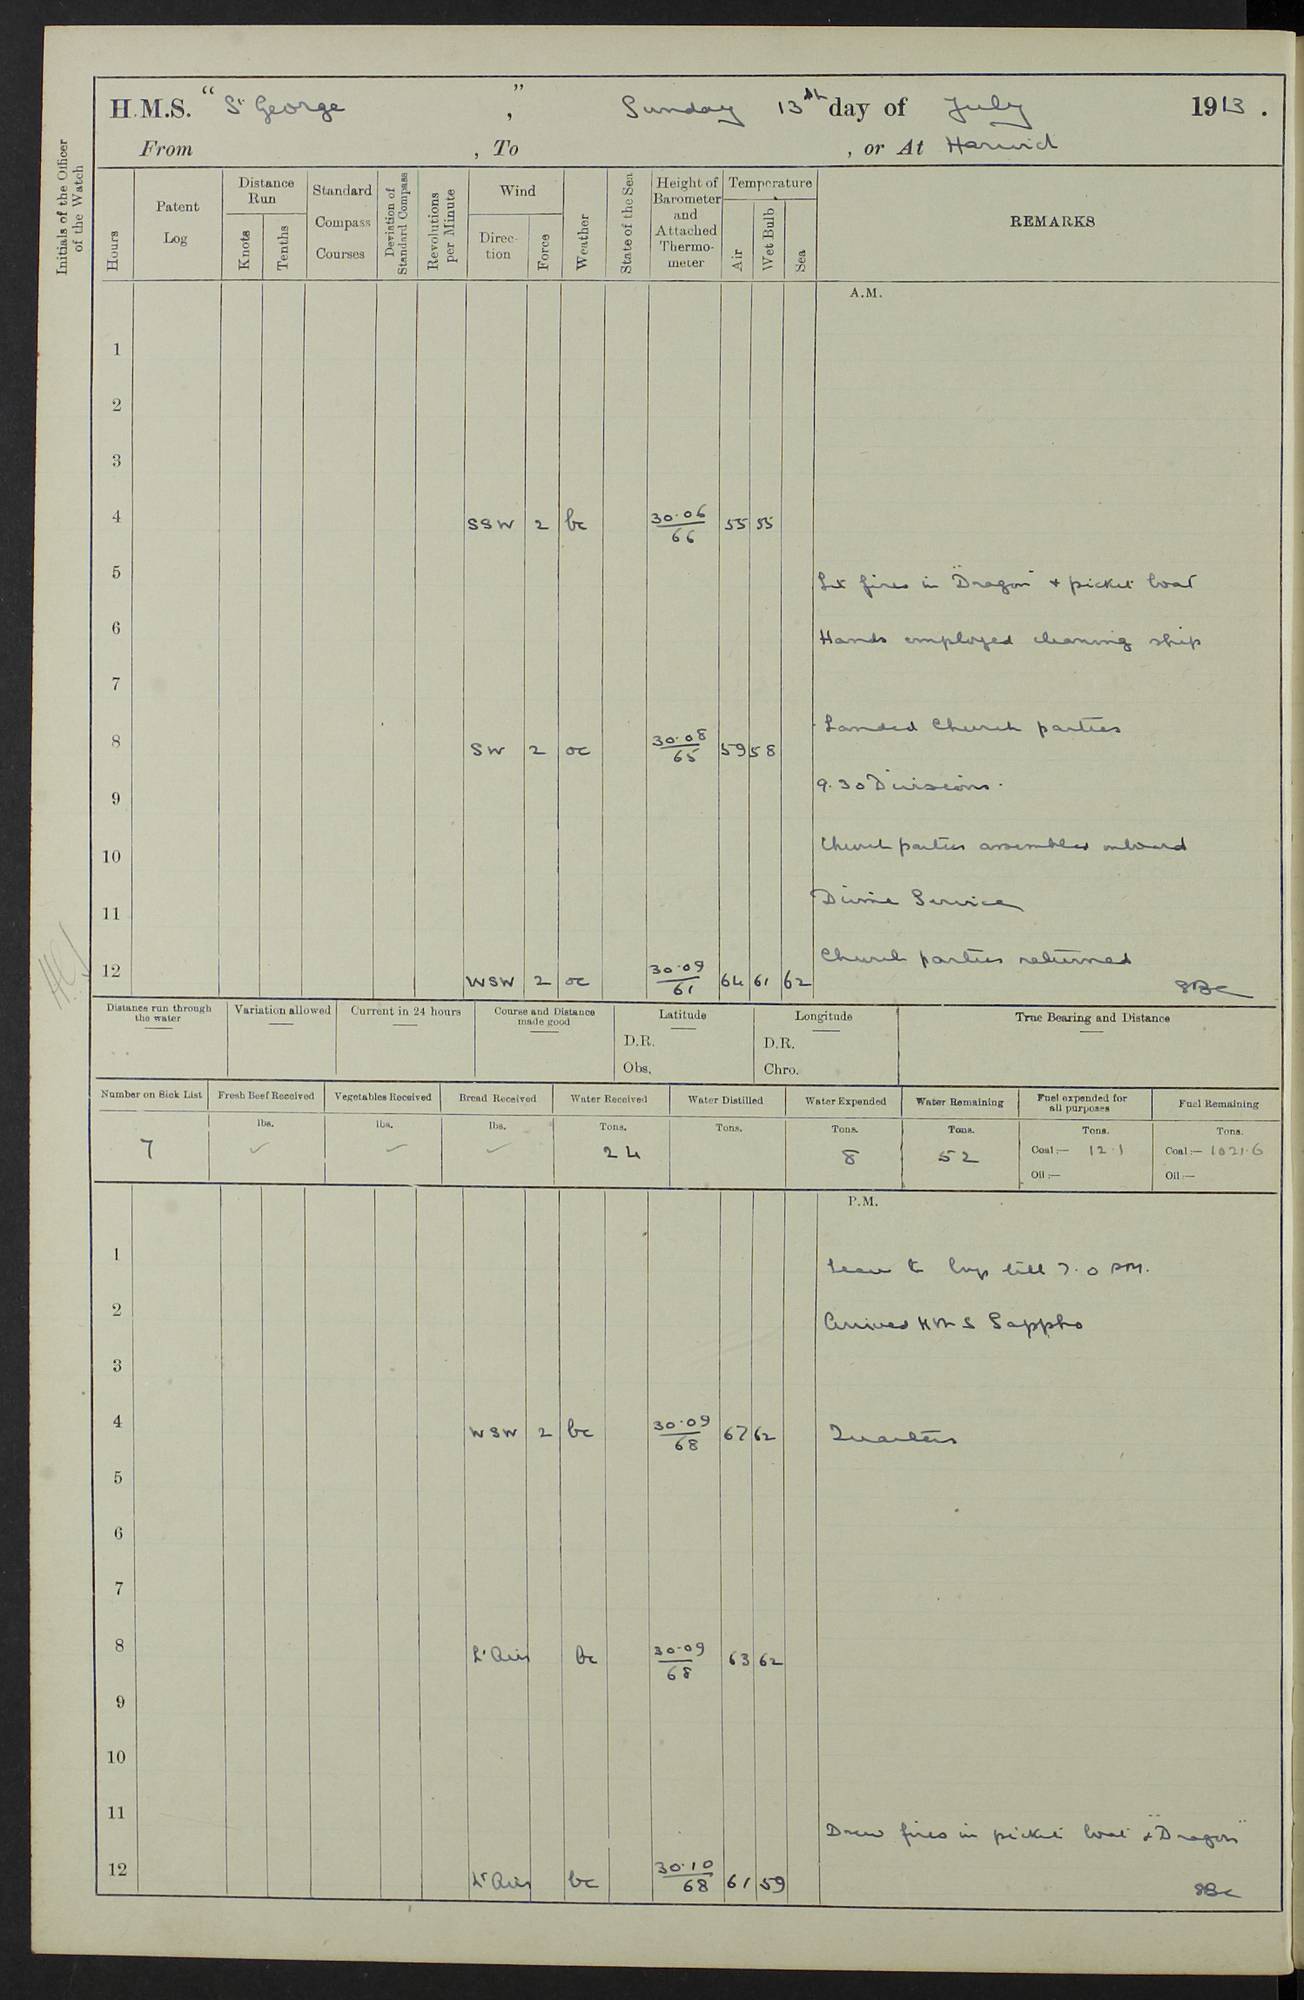 H.M.S. "St George", Sunday 13th day of July 1913.
From , To , or At Harwich
Initials of the Officer of the Watch
Hours
Patent Log
Distance Run
Knots
Tenths
Standard Compass Courses
Deviation of Standard Compass
Revolutions per Minute
Wind
Direction
Force
Weather
State of the Sea
Height of Barometer and Attached Thermometer
Temperature
Air
Wet Bulb
Sea
REMARKS
A.M.
1
2
3
4 SSW 2 bc 30.06 66 55 55
5 Lit fires in "Dragon" + picket boat
6 Hands employed cleaning ship
7
Landed Church parties
8 SW 2 oc 30.08 65 59 58
9.30 Divisions.
9
10 Church parties assembled onboard
11 Divine Service
Church parties returned
12 WSW 2 oc 30.09 61 64 61 62
Distance run through the water
Variation allowed
Current in 24 hours
Course and Distance made good
Latitude
D.R.
Obs.
Longitude
D.R.
Chro.
True Bearing and Distance
Number on Sick List
Fresh Beef Received
Vegetables Received
Bread Received
Water Received
Water Distilled
Water Expended
Water Remaining
Fuel expended for all purposes
Fuel Remaining
lbs. lbs. lbs. Tons. Tons. Tons. Tons. Tons. Tons.
7 ✓ ✓ ✓ 24 8 52 Coal:— 12.1 Coal:— 1021.6
Oil:— Oil:—
P.M.
1 Leave to boys till 7.0 PM.
2 Arrived HMS Sappho
3
4 WSW 2 bc 30.09 68 67 62 Quarters
5
6
7
8 Lt Airs bc 30.09 68 63 62
9
10
11 Drew fires in picket boat & "Dragon"
12 Lt Airs bc 30.10 68 61 59